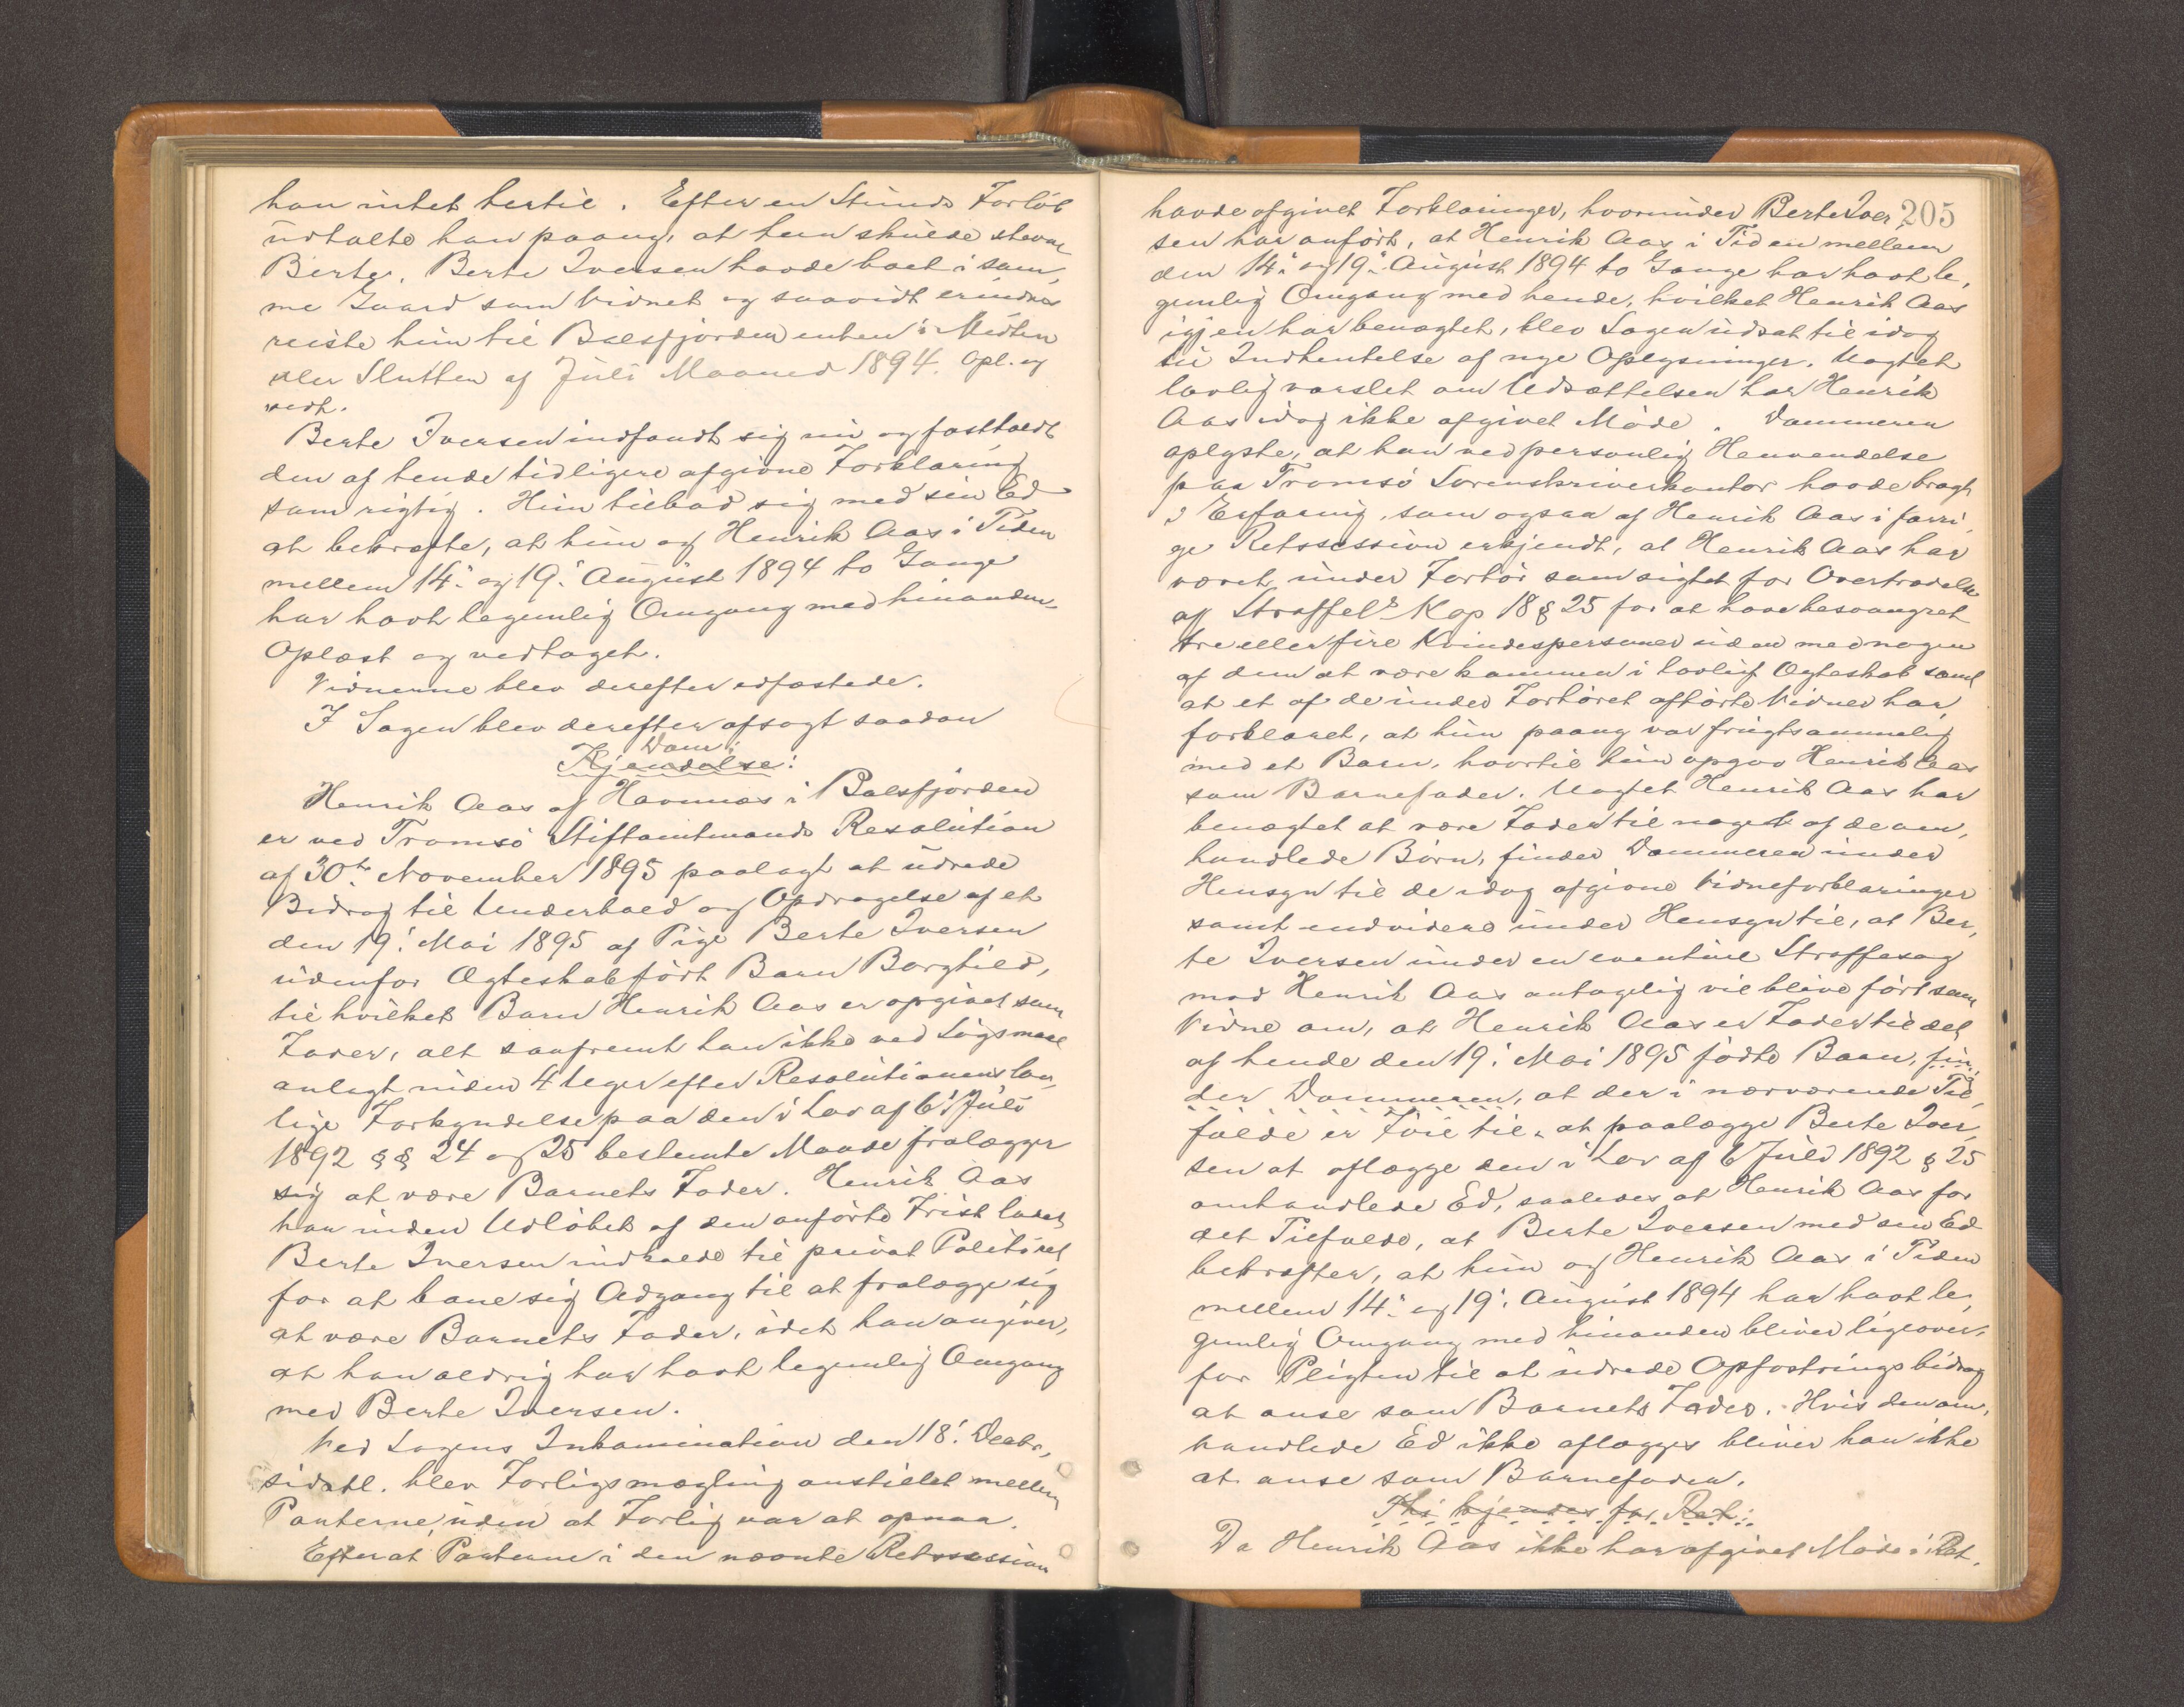 han intet hertil. Efter en Stunds Forløb
udtalte han paany, at hun skulde stevne
Berte. Berte Iversen havde boet i sam-
me Gaard som Vidnet og saavidt erindres
reiste hun til Balsfjorden enten i Midten
eller Slutten af Juli Maaned 1894. Opl. og
vedt.
Berte Iversen indfandt sig nu og fastholdt
den af hende tidligere afgivne Forklaring
som rigtig. Hun tilbød sig med sin Ed
at bekræfte, at hun og Henrik Aas i Tiden
mellem 14. og 19. August 1894 to Gange
har havt legemlig Omgang med hinanden.
Oplæst og vedtaget.
Vidnerne blev derefter edfæstede.
I Sagen blev derefter afsagt saadan
Dom:
Kjendelse:
Henrik Aas af Havnnæs i Balsfjorden
er ved Tromsø Stiftamtmands Resolution
af 30te November 1895 paalagt at udrede
Bidrag til Underhold og Opdragelse af et
den 19. Mai 1895 af Pige Berte Iversen
udenfor Ægteskab født Barn Borghild,
til hvilket Barn Henrik Aas er opgivet som
Fader, alt saafremt han ikke ved Søgsmaal
anlagt inden 4 Uger efter Resolutionens lov-
lige Forkyndelse paa den i Lov af 6. Juli
1892 §§ 24 og 25 bestemte Maade fralægger
sig at være Barnets Fader. Henrik Aas
har inden Udløbet af den anførte Frist ladet
Berte Iversen indkalde til privat Politiret
for at bane sig Adgang til at fralægge sig
at være Barnets Fader, idet han angiver,
at han aldrig har havt legemlig Omgang
med Berte Iversen.
Ved Sagens Inkamination den 18. Decbr.
sidstl. blev Forligsmægling anstillet mellem
Parterne uden at Forlig var at opnaa.
Efterat Parterne i den nævnte Retssession
205
havde afgivet Forklaringer, hvorunder Berte Iver-
sen har anført, at Henrik Aas i Tiden mellem
den 14. og 19. August 1894 to Gange har havt le-
gemlig Omgang med hende, hvilket Henrik Aas
igjen har benægtet, blev Sagen udsat til idag
til Indhentelse af nye Oplysninger. Uagtet
lovlig varslet om Udsættelsen har Henrik
Aas idag ikke afgivet Møde. Dommeren
oplyste, at han ved personlig Henvendelse
paa Tromsø Sorenskriverkontor havde bragt
i Erfaring, som ogsaa af Henrik Aas i forri-
ge Retssession erkjendt, at Henrik Aas har
været under Forhør som sigtet for Overtrædelse
af Straffel. Kap 18 § 25 for at have besvangret
tre eller fire Kvindespersoner uden med nogen
af dem at være kommen i lovligt Ægteskab samt
at et af de under Forhøret afhørte Vidner har
forklaret, at hun paany var frugtsommelig
med et Barn, hvortil hun opgav Henrik Aas
som Barnefader. Uagtet Henrik Aas har
benægtet at være Fader til noget af de om-
handlede Børn, finder Dommeren under
Hensyn til de idag afgivne Vidneforklaringer
samt endvidere under Hensyn til, at Ber-
te Iversen under en eventuel Straffesag
mod Henrik Aas antagelig vil blive ført som
Vidne om, at Henrik Aas er Fader til det
af hende den 19. Mai 1895 fødte Barn, fin-
der Dommeren, at der i nærværende Til-
fælde er Føie til at paalægge Berte Iver-
sen at aflægge den i Lov af 6 Juli 1892 § 25
omhandlede Ed, saaledes at Henrik Aas for
det Tilfælde, at Berte Iversen med sin Ed
bekræfter, at hun og Henrik Aas i Tiden
mellem 14. og 19. August 1894 har havt le-
gemlig Omgang med hinanden bliver ligeover-
for Pligten til at udrede Opfostringsbidrag
at anse som Barnets Fader. Hvis den om-
handlede Ed ikke aflægges bliver han ikke
at anse som Barnefaderen.
Thi kjendes for Ret:
Da Henrik Aas ikke har afgivet Møde i Ret-